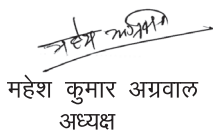 महेश अग्रवाल
महेश कुमार अग्रवाल
अध्यक्ष